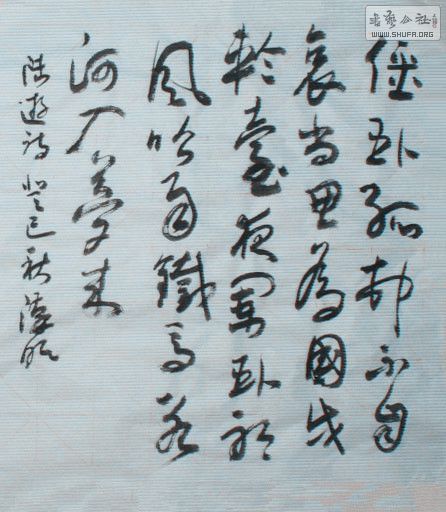 書藝公社
WWW.SHUFA.ORG
僵卧孤邨不自
哀尚思為國戍
輪臺夜闌卧聽
風吹雨鐵馬冰
河入夢来
陸游詩 癸巳秋